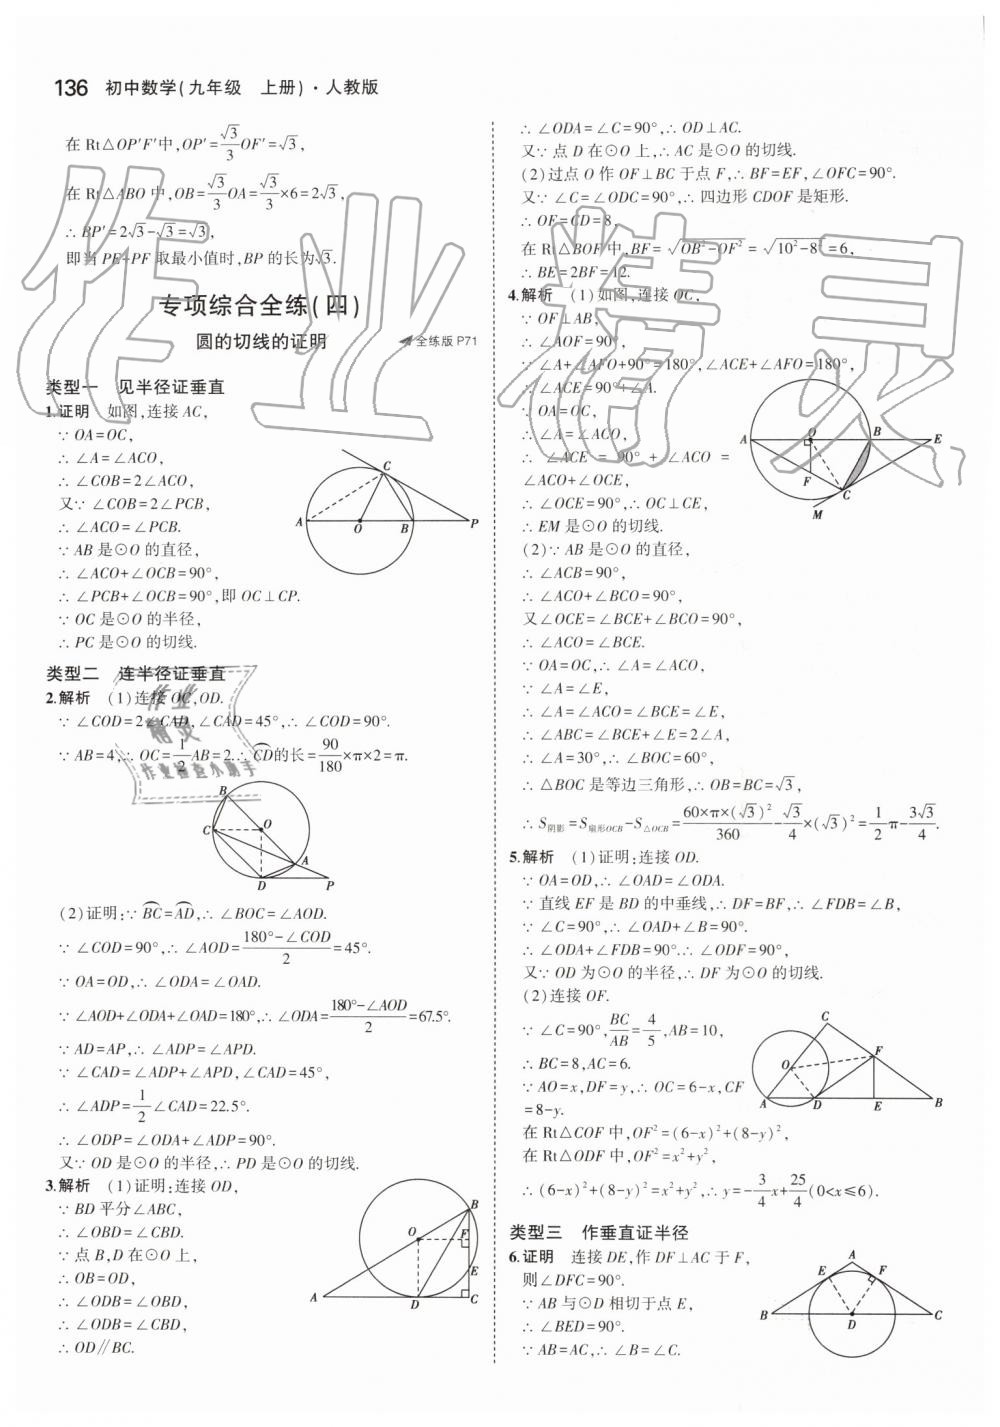 136 初中数学(九年级 上册)·人教版
在 Rt△OP′F′中,OP′=√3/3 OF′=√3,
在 Rt△ABO 中,OB=√3/3 OA=√3/3×6=2√3,
∴ BP′=2√3-√3=√3,
即当 PE+PF 取最小值时,BP 的长为√3.
专项综合全练(四)
圆的切线的证明 全练版 P71
类型一 见半径证垂直
1.证明 如图,连接 AC,
∵ OA=OC,
∴ ∠A=∠ACO,
∴ ∠COB=2∠ACO,
又∵ ∠COB=2∠PCB,
∴ ∠ACO=∠PCB.
∵ AB 是⊙O 的直径,
∴ ∠ACO+∠OCB=90°,
∴ ∠PCB+∠OCB=90°,即 OC⊥CP.
∵ OC 是⊙O 的半径,
∴ PC 是⊙O 的切线.
C
A O B P
类型二 连半径证垂直
2.解析 (1)连接 OC,OD.
∵ ∠COD=2∠CAD,∠CAD=45°,∴ ∠COD=90°.
∵ AB=4,∴ OC=1/2 AB=2.∴ CD的长=90/180×π×2=π.
B
C O
A
D P
(2)证明:∵ BC=AD,∴ ∠BOC=∠AOD.
∵ ∠COD=90°,∴ ∠AOD=(180°-∠COD)/2=45°.
∵ OA=OD,∴ ∠ODA=∠OAD.
∵ ∠AOD+∠ODA+∠OAD=180°,∴ ∠ODA=(180°-∠AOD)/2=67.5°.
∵ AD=AP,∴ ∠ADP=∠APD.
∵ ∠CAD=∠ADP+∠APD,∠CAD=45°,
∴ ∠ADP=1/2∠CAD=22.5°.
∴ ∠ODP=∠ODA+∠ADP=90°.
又∵ OD 是⊙O 的半径,∴ PD 是⊙O 的切线.
3.解析 (1)证明:连接 OD,
∵ BD 平分∠ABC,
∴ ∠OBD=∠CBD.
∵ 点 B,D 在⊙O 上,
∴ OB=OD,
∴ ∠ODB=∠OBD,
∴ ∠ODB=∠CBD,
∴ OD∥BC.
B
O F
E
A D C
∴ ∠ODA=∠C=90°,∴ OD⊥AC.
又∵ 点 D 在⊙O 上,∴ AC 是⊙O 的切线.
(2)过点 O 作 OF⊥BC 于点 F,∴ BF=EF,∠OFC=90°.
又∵ ∠C=∠ODC=90°,∴ 四边形 CDOF 是矩形.
∴ OF=CD=8,
在 Rt△BOF 中,BF=√(OB²-OF²)=√(10²-8²)=6,
∴ BE=2BF=12.
4.解析 (1)如图,连接 OC,
∵ OF⊥AB,
∴ ∠AOF=90°,
∴ ∠A+∠AFO+90°=180°,∠ACE+∠AFO=180°,
∴ ∠ACE=90°+∠A.
∵ OA=OC,
∴ ∠A=∠ACO,
∴ ∠ACE = 90° + ∠ACO =
∠ACO+∠OCE,
∴ ∠OCE=90°,∴ OC⊥CE,
∴ EM 是⊙O 的切线.
A O B E
F
C
M
(2)∵ AB 是⊙O 的直径,
∴ ∠ACB=90°,
∴ ∠ACO+∠BCO=90°,
又∠OCE=∠BCE+∠BCO=90°,
∴ ∠ACO=∠BCE.
∵ OA=OC,∴ ∠A=∠ACO,
∵ ∠A=∠E,
∴ ∠A=∠ACO=∠BCE=∠E,
∴ ∠ABC=∠BCE+∠E=2∠A,
∴ ∠A=30°,∴ ∠BOC=60°,
∴ △BOC 是等边三角形,∴ OB=BC=√3,
∴ S阴影=S扇形OCB-S△OCB=60×π×(√3)²/360-√3/4×(√3)²=1/2 π-3√3/4.
5.解析 (1)证明:连接 OD.
∵ OA=OD,∴ ∠OAD=∠ODA.
∵ 直线 EF 是 BD 的中垂线,∴ DF=BF,∴ ∠FDB=∠B,
∵ ∠C=90°,∴ ∠OAD+∠B=90°.
∴ ∠ODA+∠FDB=90°.∴ ∠ODF=90°,
又∵ OD 为⊙O 的半径,∴ DF 为⊙O 的切线.
(2)连接 OF.
∵ ∠C=90°,BC/AB=4/5,AB=10,
∴ BC=8,AC=6.
∵ AO=x,DF=y,∴ OC=6-x,CF
=8-y.
在 Rt△COF 中,OF²=(6-x)²+(8-y)²,
在 Rt△ODF 中,OF²=x²+y²,
∴ (6-x)²+(8-y)²=x²+y²,∴ y=-3/4 x+25/4(0<x≤6).
C
O F
A D E B
类型三 作垂直证半径
6.证明 连接 DE,作 DF⊥AC 于 F,
则∠DFC=90°.
∵ AB 与⊙D 相切于点 E,
∴ ∠BED=90°.
∵ AB=AC,∴ ∠B=∠C.
A
E F
B D C
作业精灵
作业精灵
作业检查小助手